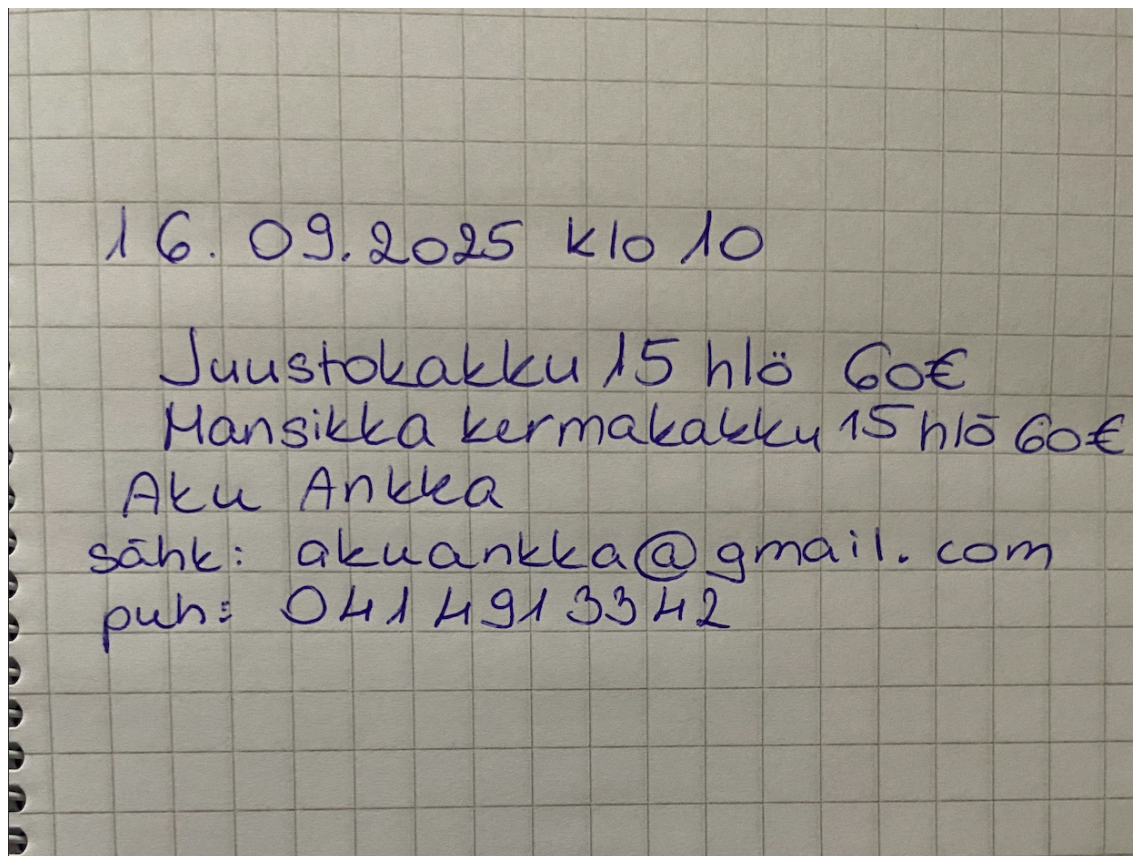 16.09.2025 klo 10
Juustokakku 15 hlö 60€
Mansikka kermakakku 15 hlö 60€
Aku Ankka
sähk: akuankka@gmail.com
puh: 041 491 3342